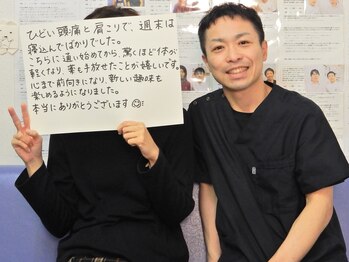 ひどい頭痛と肩こりで、週末は
寝込んでばかりでした。
こちらに通い始めてから、驚くほど体が
軽くなり、薬も手放せたことが嬉しいです。
心まで前向きになり、新しい趣味も
楽しめるようになりました。
本当にありがとうございます☺